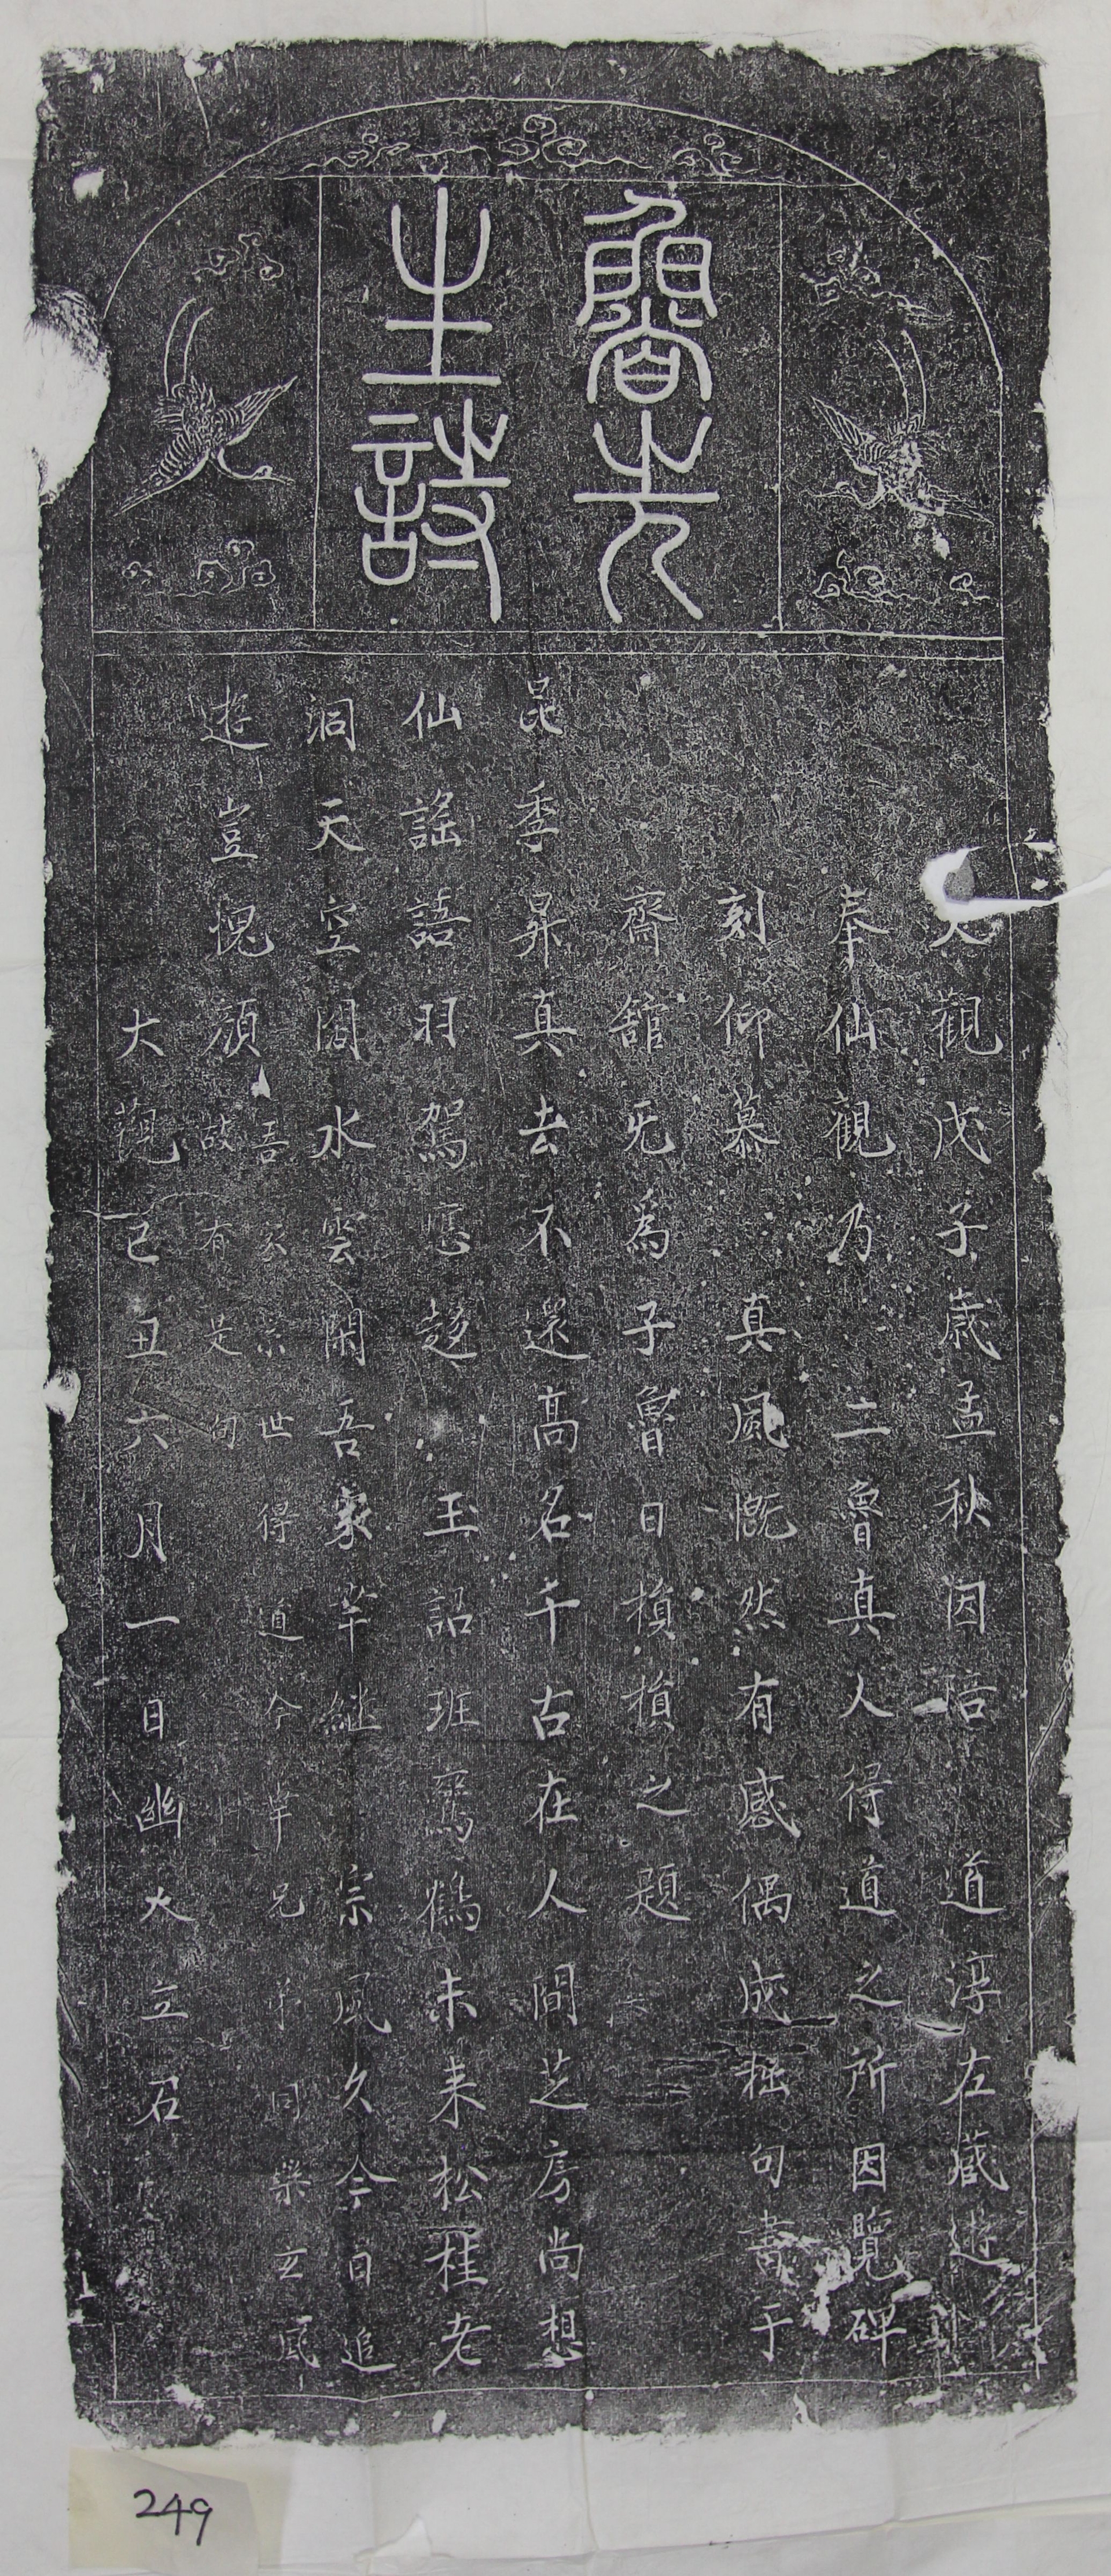 魯先
生詩
大觀戊子歲孟秋因陪 道淳左藏遊
奉仙觀乃 二魯真人得道之所因覽碑
刻仰慕 真風慨然有感偶成拙句書于
齋舘旡為子魯日損損之題
昆季昇真去不還高名千古在人間芝房尚想
仙謠語羽駕應趍 玉詔班鸞鶴未来松桂老
洞天空閟水雲閑吾家苹繼 宗風久今日追
遊豈愧顔
吾 宗 世得道今苹兄弟同樂玄風
故有是句
大觀己丑六月一日幽大立石
249